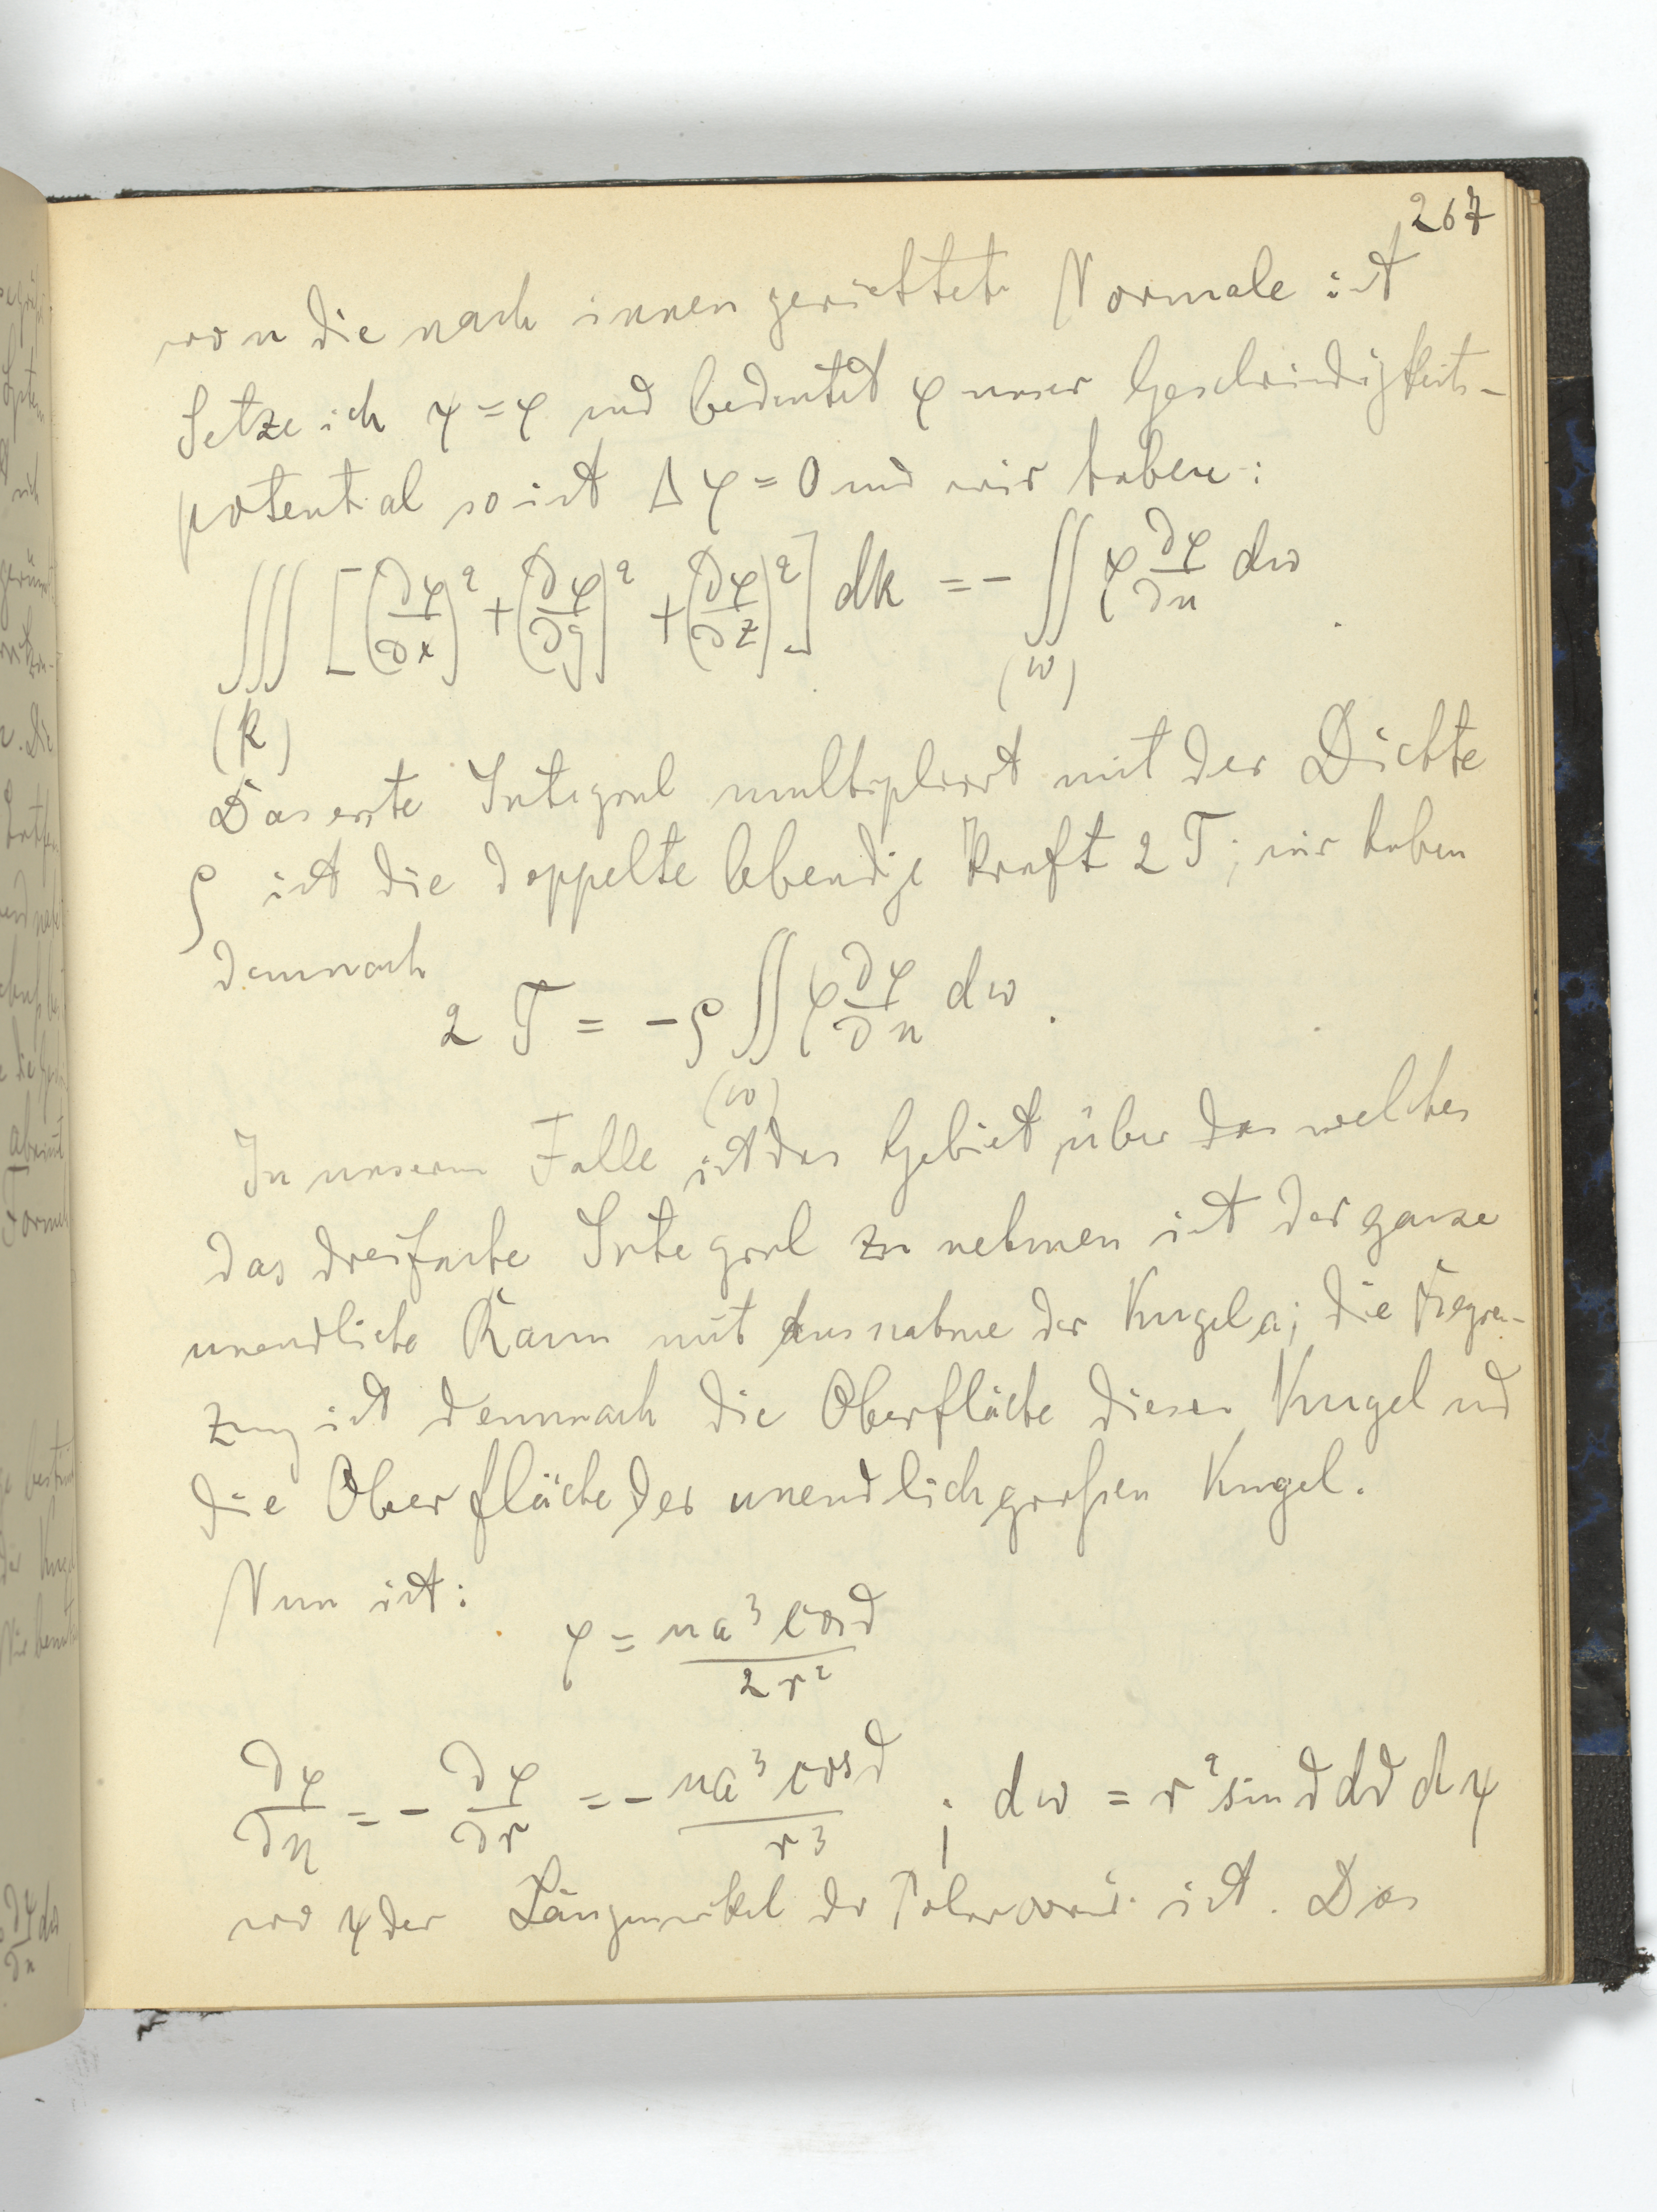 267
wo n die nach innen gerichtete Normale ist
Setze ich ψ = φ und bedeutet φ unser Geschwindigkeits-
potential so ist Δφ = 0 und wir haben:
∫∫∫ [(∂φ/∂x)² + (∂φ/∂y)² + (∂φ/∂z)²] dk = - ∫∫ φ ∂φ/∂n dω.
(k) (ω)
Das erste Integral multipliziert mit der Dichte
ρ ist die doppelte lebendige Kraft 2T; wir haben
demnach
2 T = - ρ ∫∫ φ ∂φ/∂n dω.
(ω)
In unserm Falle ist das Gebiet, über das welches
das dreifache Integral zu nehmen ist der ganze
unendliche Raum mit Ausnahme der Kugel a; die Begren-
zung ist demnach die Oberfläche dieser Kugel und
die Oberfläche der unendlich großen Kugel.
Nun ist:
φ = ua³ cos ϑ / 2r²
∂φ/∂n = - ∂φ/∂r = - ua³ cos ϑ / r³ ; dω = r² sin ϑ dϑ dψ
wo ψ der Längenwinkel der ist. Das